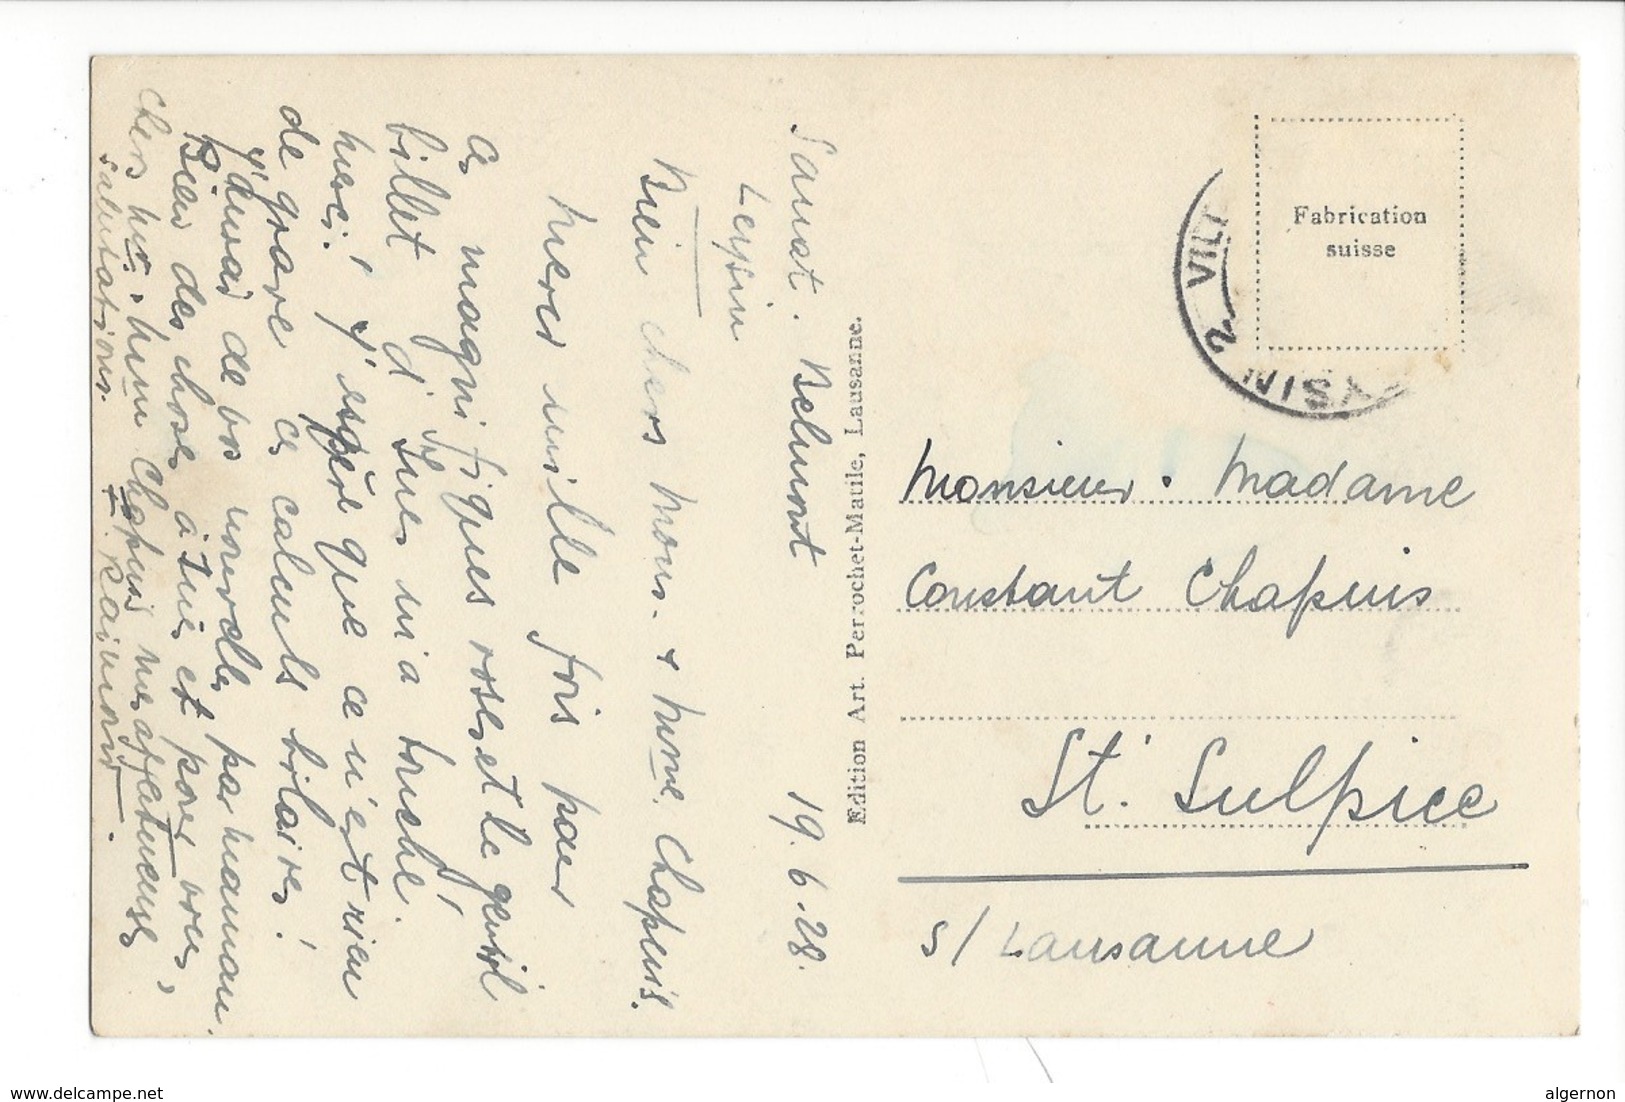 Sanat. Belmont 19.6.28.
Leysin
Bien chers Mons. & Mme. Chapuis.
Merci mille fois pour
ces magnifiques roses et le gentil
billet d'Inès m'a touché.
Merci! J'espère que ce n'est rien
de grave ces calculs biliaires!
J'aurai de vos nouvelles par maman.
Bien des choses à Inès et pour vous,
chers Mr., Mme Chapuis mes affectueuses
salutations.
Edition Art. Perrochet-Matile, Lausanne.
Fabrication
suisse
2 VILL
YSIN
Monsieur. Madame
Constant Chapuis
St. Sulpice
s/ Lausanne
www.delcampe.net
algernon